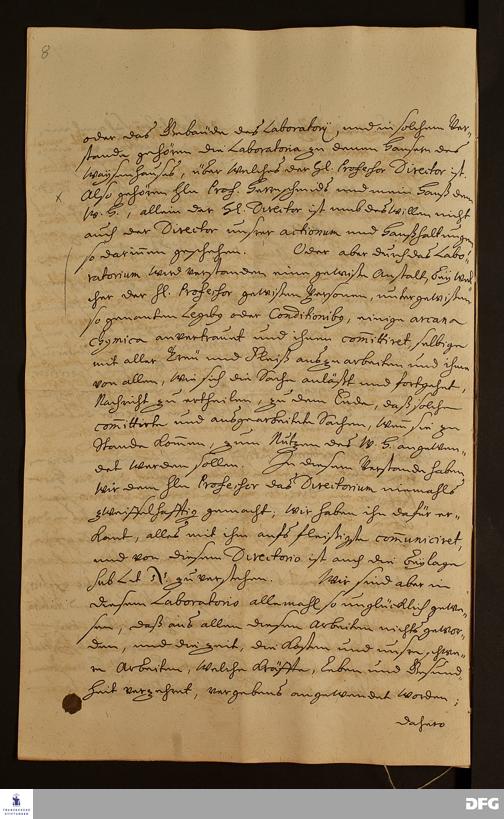 8
oder das Gebäude des Laboratorij, und in solchem Ver-
stande gehören die Laboratoria zu denen Häusern des
Waysenhauses, über welches der Hl. Professor Director ist.
Also gehören Hln Prof. Herrnschmids und mein Hauß dem
W. H., allein der Hl. Director ist umb deswillen nicht
auch der Director unsrer actionum und Haußhaltungen
so darinnen geschehen. Oder aber durch das Labo-
ratorium wird verstanden eine gewisse Anstalt, bey wel-
cher der Hl. Professor gewissen Personen, unter gewissen
so genanten Legibus oder Conditionibus, einige arcana
chymica anvertrauet und ihnen committiret, selbige
mit aller Treu und Fleiß auszuarbeiten und ihm
von allem, wie sich die Sache anläßt und fortgehet,
Nachricht zu ertheilen, zu dem Ende, daß solche
committirte und ausgearbeitete Sachen, wenn sie zu
Stande kommen, zum Nutzen des W. H. angewen-
det werden sollen. In diesem Verstande haben
wir dem Hln Professor das Directorium niemahls
zweiffelhafftig gemacht; wir haben ihn dafür er-
kant, alles mit ihm aufs fleißigste comuniciret,
und von diesem Directorio ist auch die Beylage
sub Lit. zu verstehen. Wir sind aber in
diesem Laboratorio allemahl so unglücklich gewe-
sen, daß aus allen diesen Arbeiten nichts gewor-
den, und die Zeit, die Kosten und unsre schwe-
re Arbeiten, welche Kräffte, Leben und Gesund-
heit verzehret, vergebens angewendet worden;
dahero
FRANCKESCHE
STIFTUNGEN
DFG